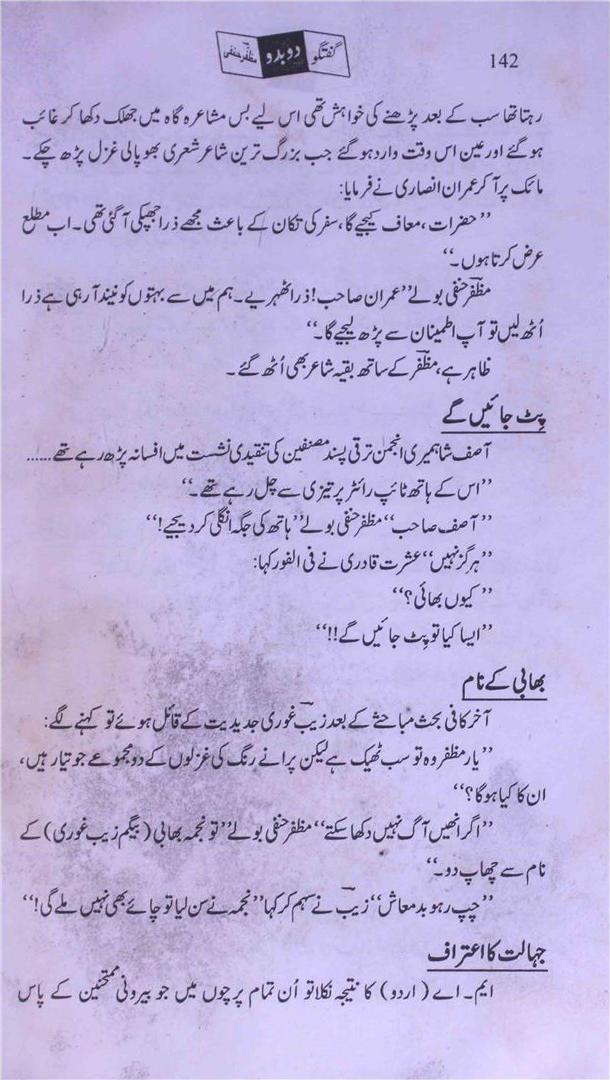 گفتگو دو بدو مظفر حنفی
142
رہتا تھا سب کے بعد پڑھنے کی خواہش تھی اس لیے بس مشاعرہ گاہ میں جھلک دکھا کر غائب
ہو گئے اور عین اس وقت وارد ہو گئے جب بزرگ ترین شاعر شعری بھوپالی غزل پڑھ چکے۔
مائک پر آ کر عمران انصاری نے فرمایا:
’’حضرات، معاف کیجیے گا، سفر کی تکان کے باعث مجھے ذرا جھپکی آ گئی تھی۔ اب مطلع
عرض کرتا ہوں۔‘‘
مظفرؔ حنفی بولے ’’عمران صاحب! ذرا ٹھہریے۔ ہم میں سے بہتوں کو نیند آ رہی ہے ذرا
اُٹھ لیں تو آپ اطمینان سے پڑھ لیجیے گا۔‘‘
ظاہر ہے، مظفرؔ کے ساتھ بقیہ شاعر بھی اُٹھ گئے۔
پِٹ جائیں گے
آصف شاہمیری انجمن ترقی پسند مصنفین کی تنقیدی نشست میں افسانہ پڑھ رہے تھے......
’’اس کے ہاتھ ٹائپ رائٹر پر تیزی سے چل رہے تھے۔‘‘
’’آصف صاحب‘‘ مظفر حنفی بولے ’’ہاتھ کی جگہ انگلی کر دیجیے!‘‘
’’ہرگز نہیں‘‘ عشرت قادری نے فی الفور کہا:
’’کیوں بھائی؟‘‘
’’ایسا کیا تو پِٹ جائیں گے!!‘‘
بھابی کے نام
آخر کافی بحث مباحثے کے بعد زیبؔ غوری جدیدیت کے قائل ہوئے تو کہنے لگے:
’’یار مظفر وہ تو سب ٹھیک ہے لیکن پرانے رنگ کی غزلوں کے دو مجموعے جو تیار ہیں،
ان کا کیا ہوگا؟‘‘
’’اگر انھیں آگ نہیں دکھا سکتے‘‘ مظفر حنفی بولے ’’تو نجمہ بھابی (بیگم زیب غوری) کے
نام سے چھاپ دو۔‘‘
’’چپ رہو بدمعاش‘‘ زیبؔ نے سہم کر کہا ’’نجمہ نے سن لیا تو چائے بھی نہیں ملے گی!‘‘
جہالت کا اعتراف
ایم۔ اے (اردو) کا نتیجہ نکلا تو اُن تمام پرچوں میں جو بیرونی ممتحنین کے پاس